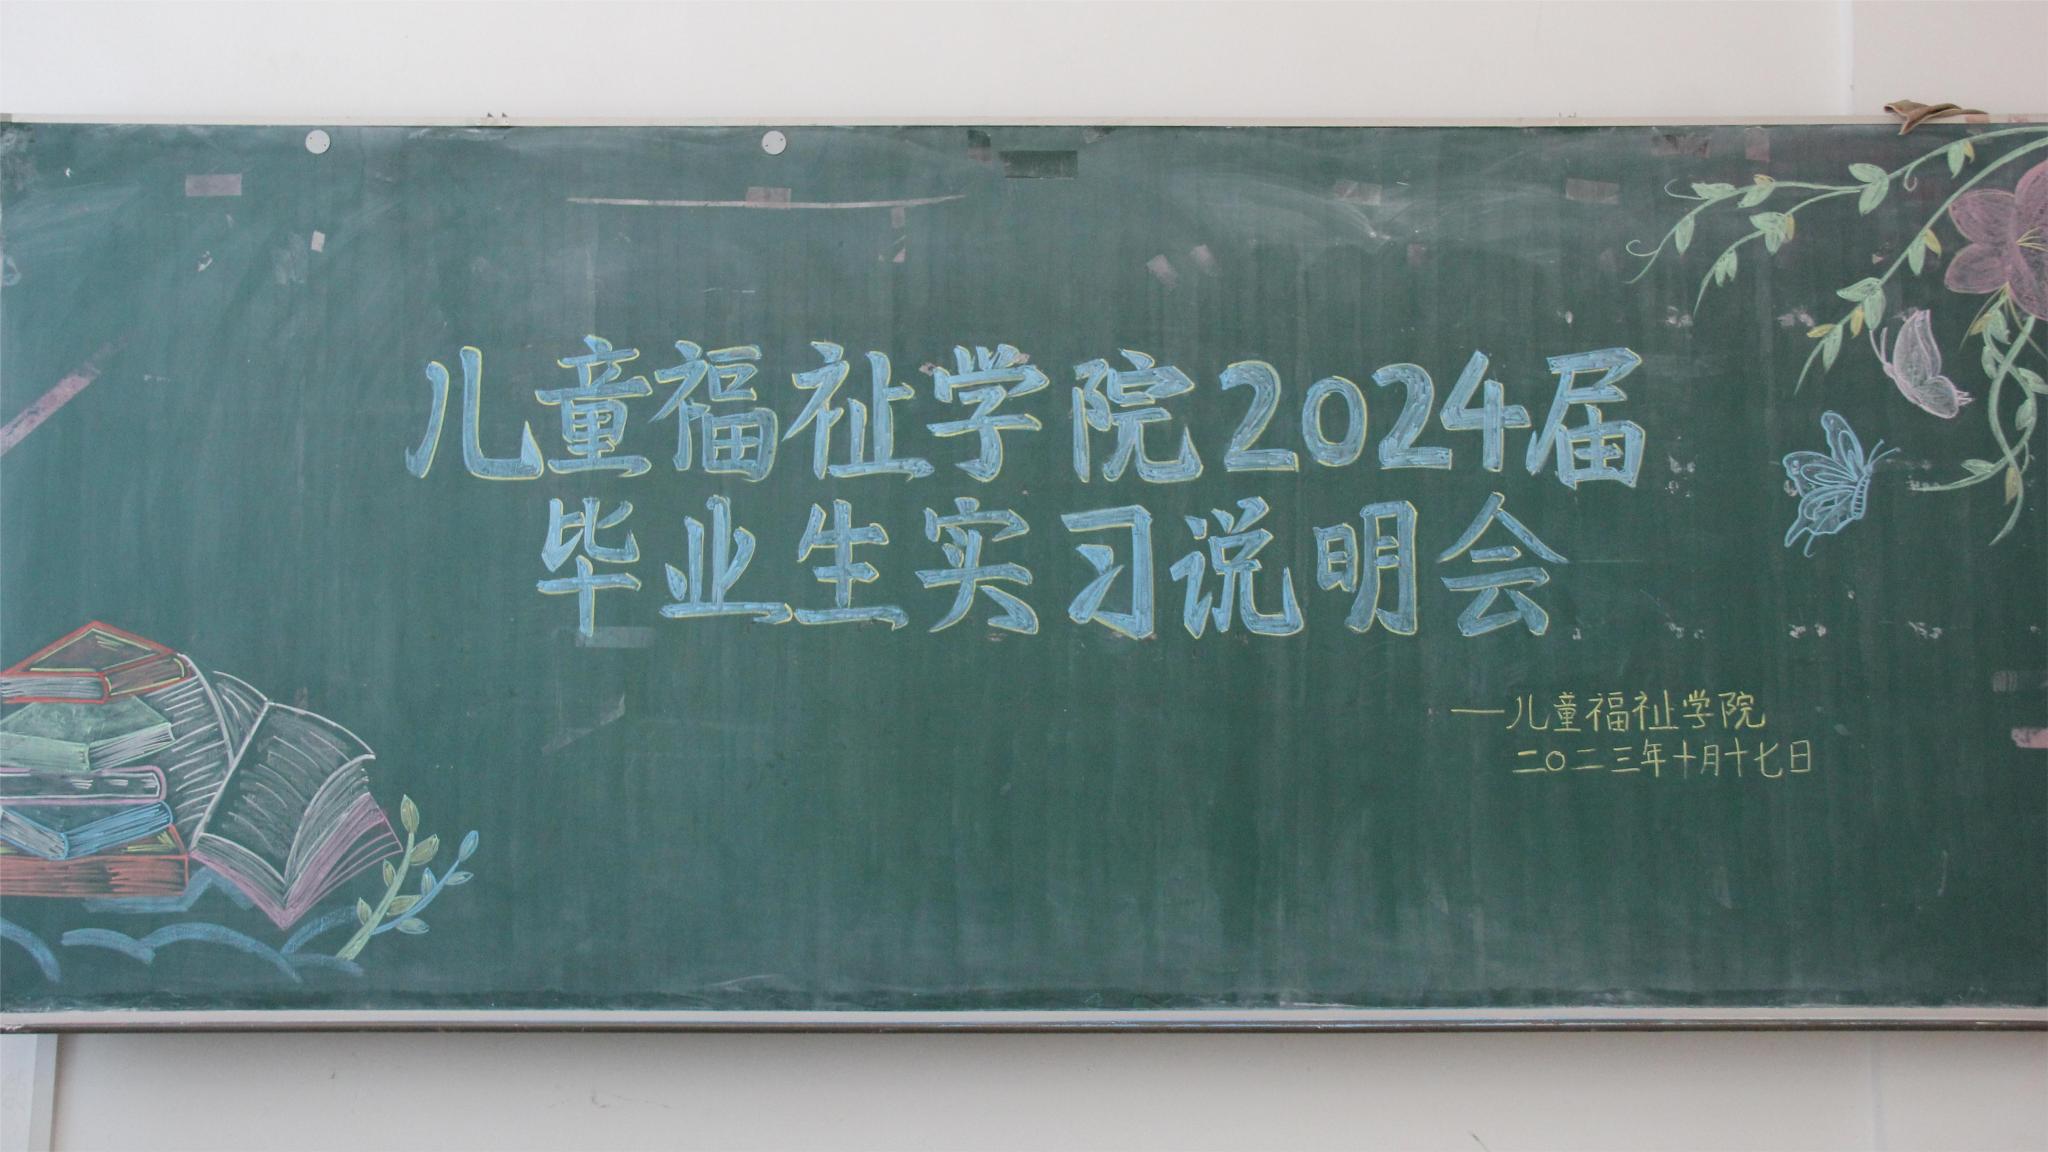 儿童福祉学院2024届
毕业生实习说明会
一儿童福祉学院
二〇二三年十月十七日